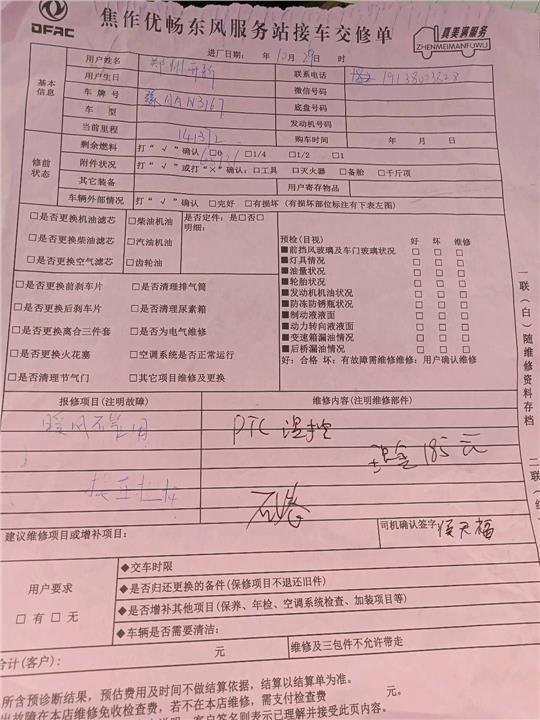 DFAC
焦作优畅东风服务站接车交修单
真美满服务
ZHENMEIMANFUWU
进厂日期： 年 10 月 29 日 时
基本信息
用户姓名 郑州开新 联系电话
用户生日 微信号码
车牌号 豫 底盘号码
车型 发动机号码
当前里程 购车时间 年 月 日
修前状态
剩余燃料 打“√”确认 □0 □1/4 □1/2 □1
附件状况 打“√”或打“×”确认：□工具 □灭火器 □备胎 □千斤顶
其它装备 用户寄存物品
车辆外部情况 打“√”确认 □完好 □有损坏（有损坏部位标注有下表左图）
□是否更换机油滤芯 □柴油机油 是否定件：是□否□
明细：
□是否更换柴油滤芯 □汽油机油
□是否更换空气滤芯 □齿轮油
□是否更换前刹车片 □是否清理排气筒
□是否更换后刹车片 □是否清理尿素箱
□是否更换离合三件套 □是否为电气维修
□是否更换火花塞 □空调系统是否正常运行
□是否清理节气门 □其它项目维修及更换
预检(目视) 好 坏 维修
■前挡风玻璃及车门玻璃状况 □ □ □
■灯具情况 □ □ □
■油量状况 □ □ □
■轮胎状况 □ □ □
■发动机机油状况 □ □ □
■防冻防锈瓶状况 □ □ □
■制动液液面 □ □ □
■动力转向液液面 □ □ □
■变速箱漏油情况 □ □ □
■后桥漏油情况 □ □ □
好：合格 坏：有故障需维修维修：用户确认维修
一联（白）随维修资料存档
二联（
报修项目(注明故障) 维修内容(注明维修部件)
暖风不管用 PTC 温控
现金 185 元
建议维修项目或增补项目： 司机确认签字 侯天福
用户要求
□ 有 □ 无
◆交车时限
◆是否归还更换的备件(保修项目不退还旧件)
◆是否增补其他项目(保养、年检、空调系统检查、加装项目等)
◆车辆是否需要清洁：
合计(客户)： 元 维修及三包件不允许带走
所含预诊断结果，预估费用及时间不做结算依据，结算以结算单为准。
出故障在本店维修免收检查费，若不在本店维修，需支付检查费 元。
客户签名则表示已理解并接受此页内容。